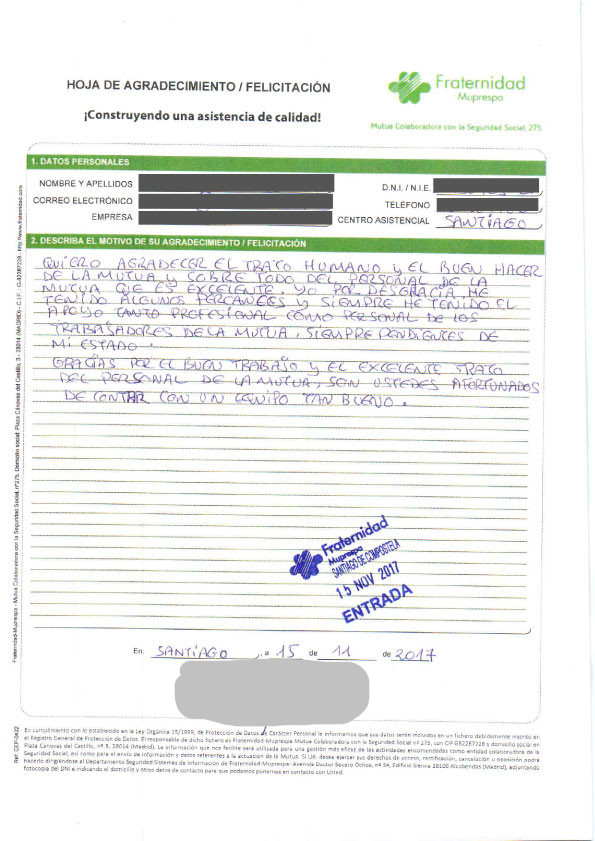 HOJA DE AGRADECIMIENTO / FELICITACIÓN
¡Construyendo una asistencia de calidad!
Fraternidad
Muprespa
Mutua Colaboradora con la Seguridad Social, 275
1. DATOS PERSONALES
NOMBRE Y APELLIDOS
D.N.I. / N.I.E.
CORREO ELECTRÓNICO
TELÉFONO
EMPRESA
CENTRO ASISTENCIAL SANTIAGO
2. DESCRIBA EL MOTIVO DE SU AGRADECIMIENTO / FELICITACIÓN
QUIERO AGRADECER EL TRATO HUMANO y EL BUEN HACER
DE LA MUTUA y SOBRE TODO DEL PERSONAL DE LA
MUTUA QUE ES EXCELENTE. YO POR DESGRACIA HE
TENIDO ALGUNOS PERCANCES y SIEMPRE HE TENIDO EL
APOYO TANTO PROFESIONAL COMO PERSONAL DE LOS
TRABAJADORES DE LA MUTUA, SIEMPRE PENDIENTES DE
MI ESTADO.
GRACIAS POR EL BUEN TRABAJO y EL EXCELENTE TRATO
DEL PERSONAL DE LA MUTUA, SON USTEDES AFORTUNADOS
DE CONTAR CON UN EQUIPO TAN BUENO.
Fraternidad
Muprespa
SANTIAGO DE COMPOSTELA
15 NOV 2017
ENTRADA
En: SANTIAGO, a 15 de 11 de 2017
En cumplimiento con lo establecido en la Ley Orgánica 15/1999, de Protección de Datos de Carácter Personal le informamos que sus datos serán incluidos en un fichero debidamente inscrito en
el Registro General de Protección de Datos. El responsable de dicho fichero es Fraternidad Muprespa Mutua Colaboradora con la Seguridad Social nº 275, con CIF G82287228 y domicilio social en
Plaza Cánovas del Castillo, nº 3, 28014 (Madrid). La información que nos facilite será utilizada para una gestión más eficaz de las actividades encomendadas como entidad colaboradora de la
Seguridad Social, así como para el envío de información y datos referentes a la actuación de la Mutua. Si Ud. desea ejercer sus derechos de acceso, rectificación, cancelación u oposición podrá
hacerlo dirigiéndose al Departamento Seguridad Sistemas de Información de Fraternidad-Muprespa: Avenida Doctor Severo Ochoa, nº 54, Edificio Sienna 28100 Alcobendas (Madrid), adjuntando
fotocopia del DNI e indicando el domicilio y otros datos de contacto para que podamos ponernos en contacto con Usted.
Fraternidad-Muprespa - Mutua Colaboradora con la Seguridad Social, nº275. Domicilio social: Plaza Cánovas del Castillo, 3 - 28014 (MADRID) - C.I.F.: G-82287228 - http://www.fraternidad.com